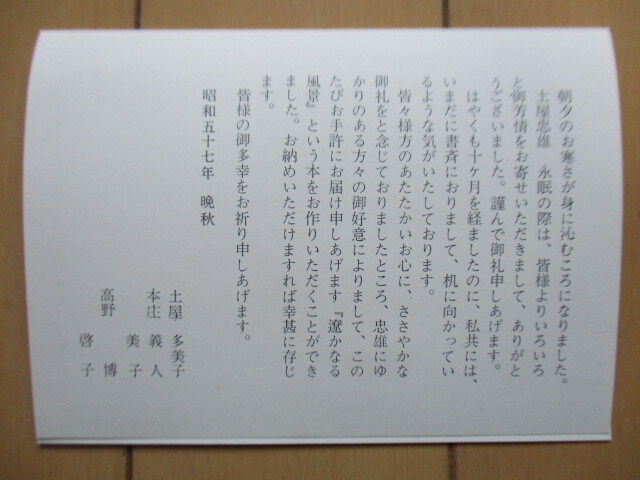 朝夕のお寒さが身に沁むころになりました。
土屋忠雄　永眠の際は、皆様よりいろいろ
と御芳情をお寄せいただきまして、ありがと
うございました。謹んで御礼申しあげます。
はやくも十ケ月を経ましたのに、私共には、
いまだに書斉におりまして、机に向かってい
るような気がいたしております。
皆々様方のあたたかいお心に、ささやかな
御礼をと念じておりましたところ、忠雄にゆ
かりのある方々の御好意によりまして、この
たびお手許にお届け申しあげます『遼かなる
風景』という本をお作りいただくことができ
ました。お納めいただけますれば幸甚に存じ
ます。
皆様の御多幸をお祈り申しあげます。
昭和五十七年　晩秋
土屋　多美子
本庄　義人
美子
高野　博
啓子